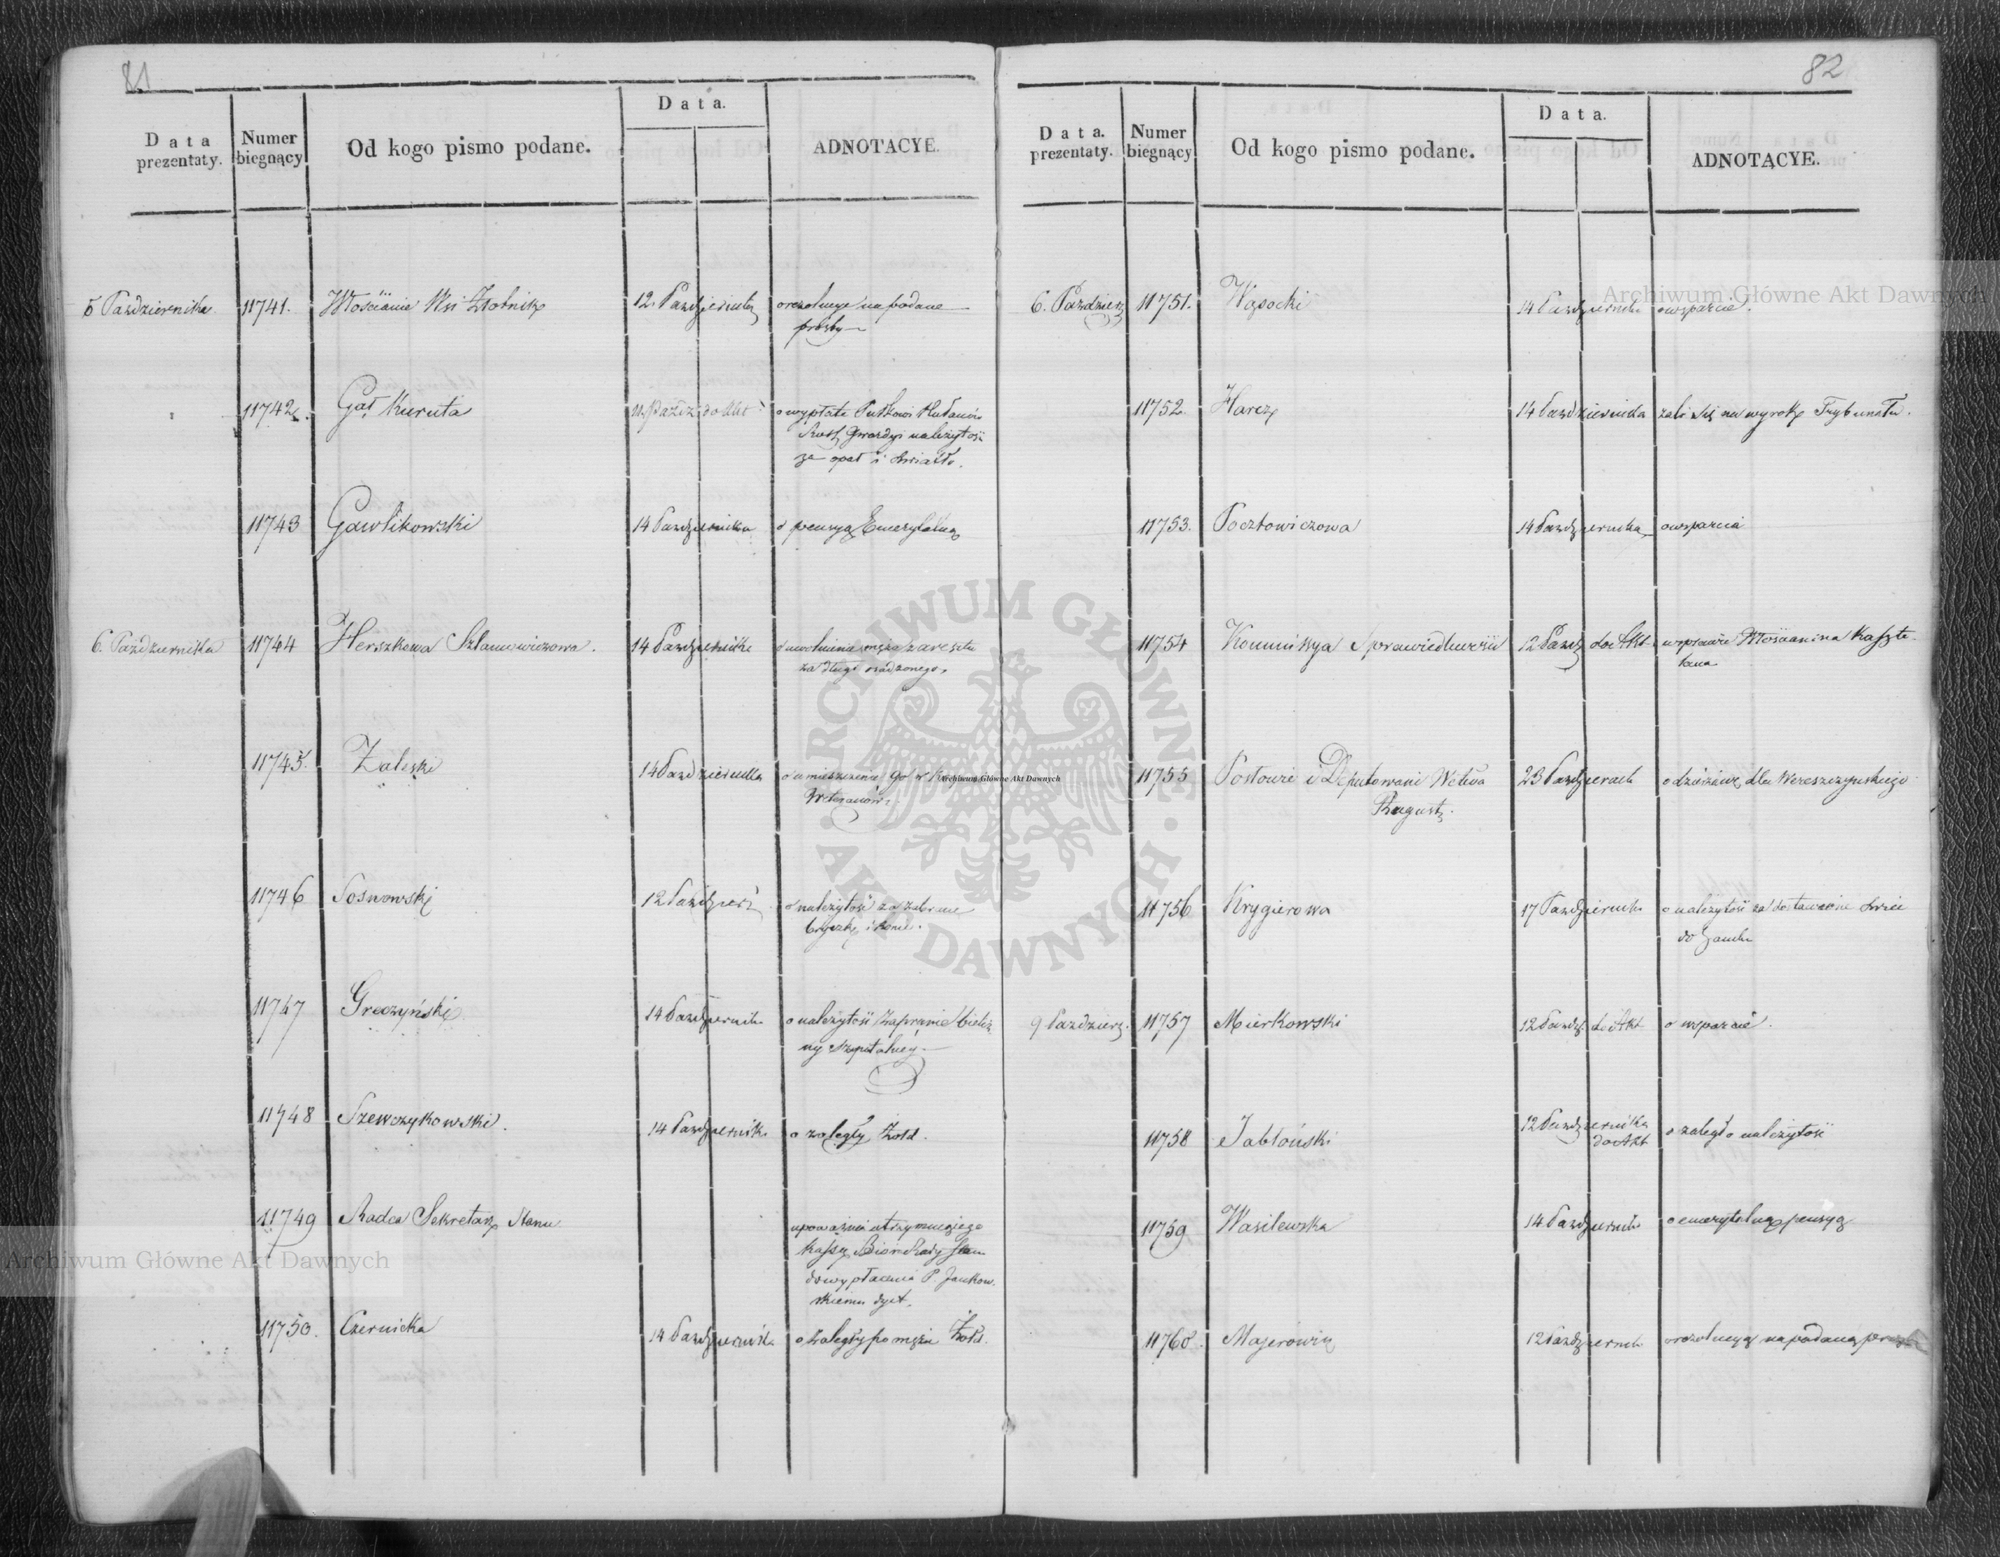 81
Data prezentaty.
Numer biegnący
Od kogo pismo podane.
Data.
ADNOTACYE.
5 Października
11741.
Włościanie Wsi Złotnik
12. Października
o rezolucye na podane
prośby
11742.
Gał Kuruta
Paźdz: do Akt
o wypłatę Pułkowi Hułanów
Gwardyi należytość
za opał i światło.
11743
Gawlikowski
14 Października
o pensyą Emerytalną
6. Października
11744
Herszkowa Szlamowiczowa.
14 Października
o uwolnienie męża z aresztu
za długi osadzonego.
11745.
Zaleski
14 Października
o umieszczenie go w
Weteranów.
11746
Sosnowski
12 Paździer:
o należytość za zabrane
bryczkę i konie.
11747
Greczyński
14 Październik
o należytość za pranie bieliz
ny szpitalney
11748
Szewczykowski.
14 Październik
o zaległy żołd.
11749
Radca Sekretarz Stanu
upoważnia utrzymującego
Kassę Biór Rady Stanu
do wypłacenia P. Jankow
skiemu dyet.
11750.
Czernicka
14 Październik
o zaległy po mężu żołd.
82
Data. prezentaty.
Numer biegnący
Od kogo pismo podane.
Data.
ADNOTACYE.
6. Paździer
11751.
Wysocki
14 Październik
o wsparcie.
11752.
Harcz
14 Października
żali się na wyrok Trybunału.
11753.
Pocztowiczowa
14 Października
o wsparcie
11754
Kommissya Sprawiedliwości
12 Paźdz do Akt
w sprawie Włościanina Kaszte
lana
11755
Posłowie i Deputowani Wctwa
August.
23 Październik
o dzierżawę dla Wereszczyńskiego
11756
Krygierowa
17 Październik
o należytość za dostawienie
do Zamku
9 Paździer.
11757
Mierkowski
12 Paźdz. do Akt
o wsparcie.
11758
Jabłoński
12 Października
do Akt
o zaległo należytość
11759
Wasilewska
14 Październik
o emerytalną pensyą
11760.
Majerowicz
12 Październik
o rezolucyą na podaną prośbę
Archiwum Główne Akt Dawnych
Archiwum Główne Akt Dawnych
Archiwum Główne Akt Dawnych
ARCHIWUM GŁÓWNE · AKT DAWNYCH ·